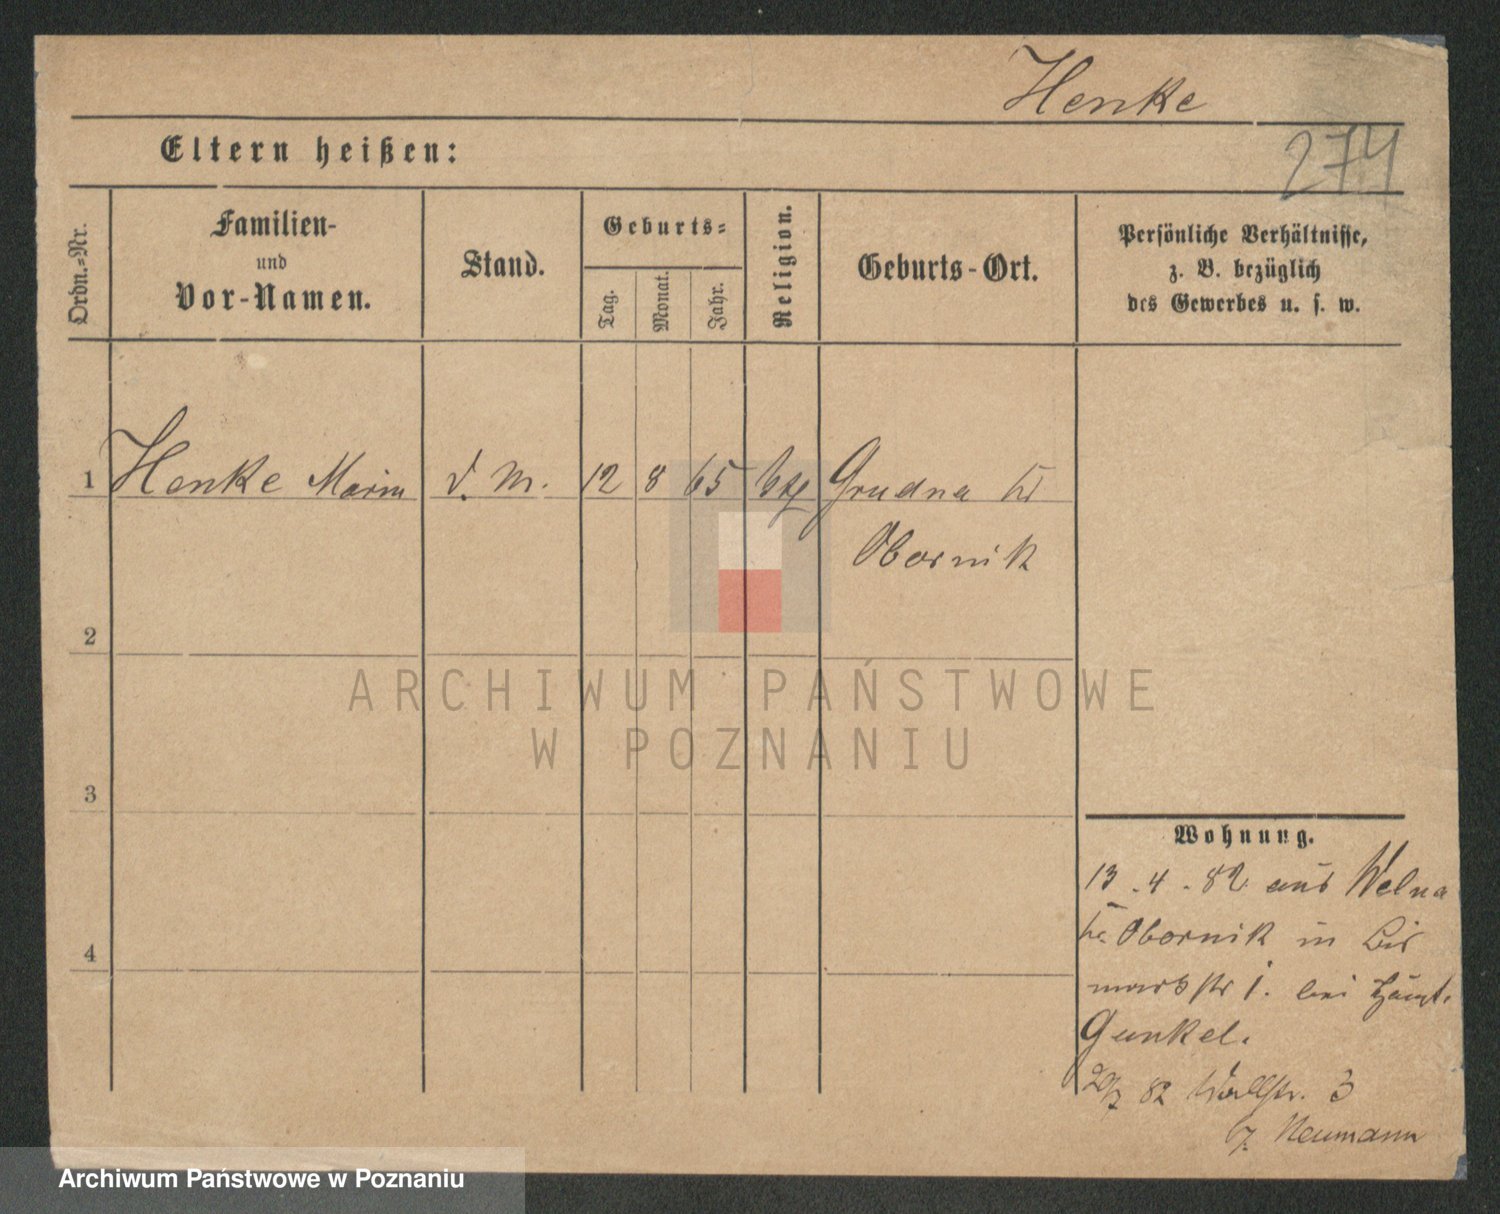 Henke
274
Eltern heißen:
Ordn.-Nr.
Familien-
und
Vor-Namen.
Stand.
Geburts-
Tag.
Monat.
Jahr.
Religion.
Geburts-Ort.
Persönliche Verhältnisse,
z. B. bezüglich
des Gewerbes u. s. w.
1 Henke d. M. 12 8 65 Grudna
Obornik
2
3
4
ARCHIWUM PAŃSTWOWE
W POZNANIU
Wohnung.
13.4.82 aus Welna
Obornik in Bis
markstr 1. bei Haupt.
Gunkel.
20/7 82 Wallstr. 3
Neumann
Archiwum Państwowe w Poznaniu